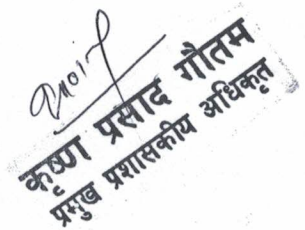 कृष्ण प्रसाद गौतम
प्रमुख प्रशासकीय अधिकृत